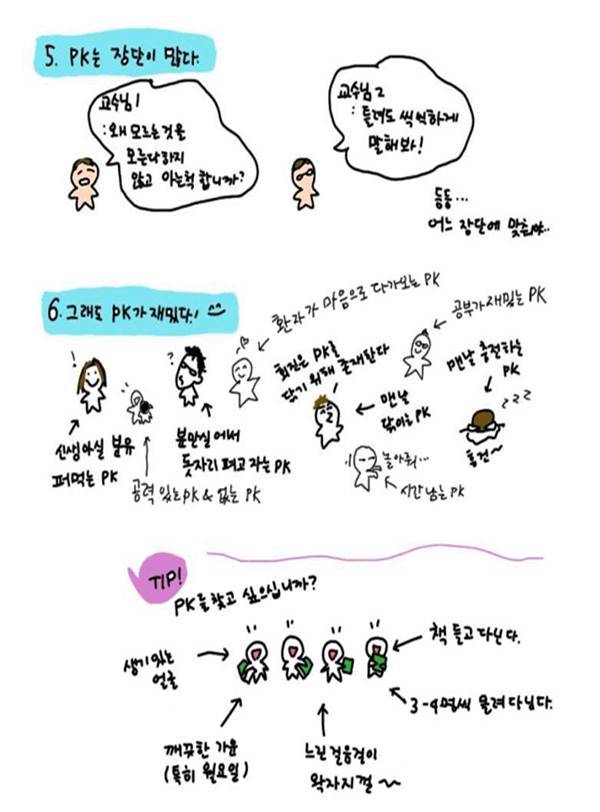 5. PK는 장단이 많다.
교수님 1
: 왜 모르는 것을
모른다 하지
않고 아는척 합니까?
교수님 2
: 틀려도 씩씩하게
말해봐!
등등...
어느 장단에 맞춰야..
6. 그래도 PK가 재밌다!
환자가 마음으로 다가오는 PK
공부가 재밌는 PK
회진은 PK를
닦기 위해 존재한다
맨날
닦이는 PK
맨날 충전하는
PK
zzz
흥건~
!
신생아실 분유
퍼먹는 PK
?
분만실에서
돗자리 펴고 자는 PK
공력 있는 PK & 없는 PK
놀아줘...
시간 남는 PK
TIP!
PK를 찾고 싶으십니까?
생기 있는
얼굴
책 들고 다닌다.
3-4명씩 몰려다닌다.
깨끗한 가운
(특히 월요일)
느린 걸음걸이
왁자지껄~